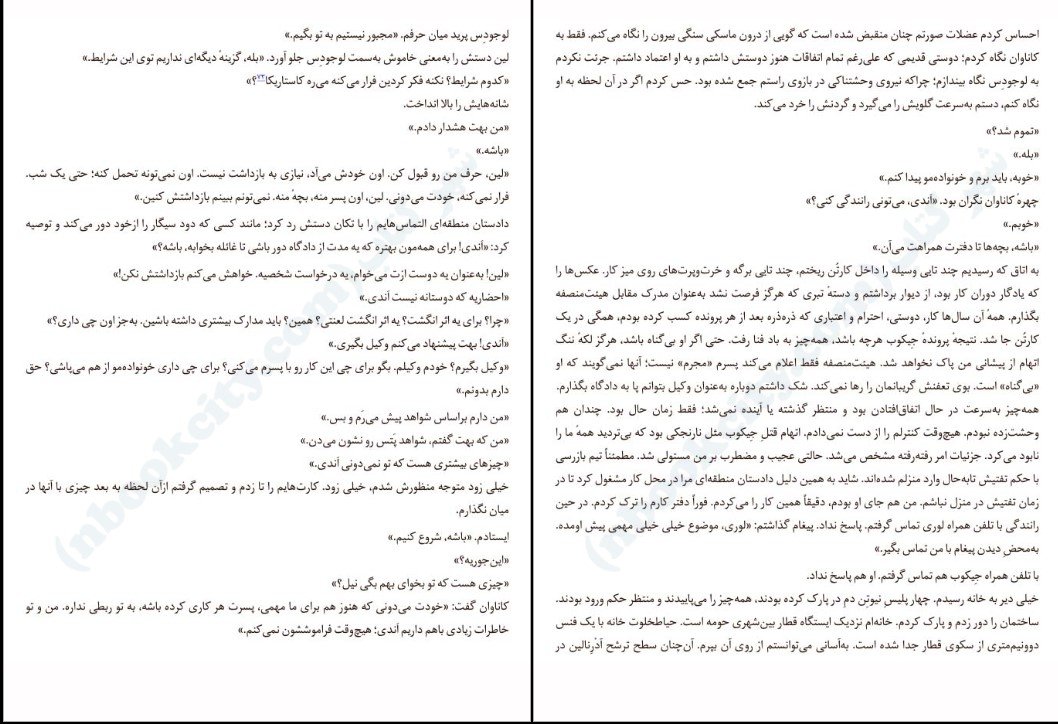 لوجودِس پرید میان حرفم. «مجبور نیستیم به تو بگیم.»
لین دستش را به‌معنی خاموش به‌سمت لوجودِس جلو آورد. «بله، گزینهٔ دیگه‌ای نداریم توی این شرایط.»
«کدوم شرایط؟ نکنه فکر کردین فرار می‌کنه می‌ره کاستاریکا۷۲؟»
شانه‌هایش را بالا انداخت.
«من بهت هشدار دادم.»
«باشه.»
«لین، حرف من رو قبول کن. اون خودش می‌آد، نیازی به بازداشت نیست. اون نمی‌تونه تحمل کنه؛ حتی یک شب.
فرار نمی‌کنه، خودت می‌دونی. لین، اون پسر منه، بچهٔ منه. نمی‌تونم ببینم بازداشتش کنین.»
دادستان منطقه‌ای التماس‌هایم را با تکان دستش رد کرد؛ مانند کسی که دود سیگار را ازخود دور می‌کند و توصیه
کرد: «اَندی! برای همه‌مون بهتره که یه مدت از دادگاه دور باشی تا غائله بخوابه، باشه؟»
«لین! به‌عنوان یه دوست ازت می‌خوام، یه درخواست شخصیه. خواهش می‌کنم بازداشتش نکن!»
«احضاریه که دوستانه نیست اَندی.»
«چرا؟ برای یه اثر انگشت؟ یه اثر انگشت لعنتی؟ همین؟ باید مدارک بیشتری داشته باشین. به‌جز اون چی داری؟»
«اَندی! بهت پیشنهاد می‌کنم وکیل بگیری.»
«وکیل بگیرم؟ خودم وکیلم. بگو برای چی این کار رو با پسرم می‌کنی؟ برای چی داری خونواده‌مو از هم می‌پاشی؟ حق
دارم بدونم.»
«من دارم براساس شواهد پیش می‌رَم و بس.»
«من که بهت گفتم، شواهد پَتس رو نشون می‌دن.»
«چیزهای بیشتری هست که تو نمی‌دونی اَندی.»
خیلی زود متوجه منظورش شدم، خیلی زود. کارت‌هایم را تا زدم و تصمیم گرفتم ازآن لحظه به بعد چیزی با آنها در
میان نگذارم.
ایستادم. «باشه، شروع کنیم.»
«این‌جوریه؟»
«چیزی هست که تو بخوای بهم بگی نیل؟»
کاناوان گفت: «خودت می‌دونی که هنوز هم برای ما مهمی، پسرت هر کاری کرده باشه، به تو ربطی نداره. من و تو
خاطرات زیادی باهم داریم اَندی؛ هیچ‌وقت فراموششون نمی‌کنم.»
احساس کردم عضلات صورتم چنان منقبض شده است که گویی از درون ماسکی سنگی بیرون را نگاه می‌کنم. فقط به
کاناوان نگاه کردم؛ دوستی قدیمی که علی‌رغم تمام اتفاقات هنوز دوستش داشتم و به او اعتماد داشتم. جرئت نکردم
به لوجودِس نگاه بیندازم؛ چراکه نیروی وحشتناکی در بازوی راستم جمع شده بود. حس کردم اگر در آن لحظه به او
نگاه کنم، دستم به‌سرعت گلویش را می‌گیرد و گردنش را خرد می‌کند.
«تموم شد؟»
«بله.»
«خوبه، باید برم و خونواده‌مو پیدا کنم.»
چهرهٔ کاناوان نگران بود. «اَندی، می‌تونی رانندگی کنی؟»
«خوبم.»
«باشه، بچه‌ها تا دفترت همراهت می‌آن.»
به اتاق که رسیدیم چند تایی وسیله را داخل کارتُن ریختم، چند تایی برگه و خرت‌وپرت‌های روی میز کار. عکس‌ها را
که یادگار دوران کار بود، از دیوار برداشتم و دستهٔ تبری که هرگز فرصت نشد به‌عنوان مدرک مقابل هیئت‌منصفه
بگذارم. همهٔ آن سال‌ها کار، دوستی، احترام و اعتباری که ذره‌ذره بعد از هر پرونده کسب کرده بودم، همگی در یک
کارتُن جا شد. نتیجهٔ پروندهٔ جیکوب هرچه باشد، همه‌چیز به باد فنا رفت. حتی اگر او بی‌گناه باشد، هرگز لکهٔ ننگ
اتهام از پیشانی من پاک نخواهد شد. هیئت‌منصفه فقط اعلام می‌کند پسرم «مجرم» نیست؛ آنها نمی‌گویند که او
«بی‌گناه» است. بوی تعفنش گریبانمان را رها نمی‌کند. شک داشتم دوباره به‌عنوان وکیل بتوانم پا به دادگاه بگذارم.
همه‌چیز به‌سرعت در حال اتفاق‌افتادن بود و منتظر گذشته یا آینده نمی‌شد؛ فقط زمان حال بود. چندان هم
وحشت‌زده نبودم. هیچ‌وقت کنترلم را از دست نمی‌دادم. اتهام قتلِ جیکوب مثل نارنجکی بود که بی‌تردید همهٔ ما را
نابود می‌کرد. جزئیات امر رفته‌رفته مشخص می‌شد. حالتی عجیب و مضطرب بر من مستولی شد. مطمئناً تیم بازرسی
با حکم تفتیش تابه‌حال وارد منزلم شده‌اند. شاید به همین دلیل دادستان منطقه‌ای مرا در محل کار مشغول کرد تا در
زمان تفتیش در منزل نباشم. من هم جای او بودم، دقیقاً همین کار را می‌کردم. فوراً دفتر کارم را ترک کردم. در حین
رانندگی با تلفن همراه لوری تماس گرفتم. پاسخ نداد. پیغام گذاشتم: «لوری، موضوع خیلی خیلی مهمی پیش اومده.
به‌محضِ دیدن پیغام با من تماس بگیر.»
با تلفن همراه جیکوب هم تماس گرفتم. او هم پاسخ نداد.
خیلی دیر به خانه رسیدم. چهار پلیس نیوتِن دمِ در پارک کرده بودند، همه‌چیز را می‌پاییدند و منتظر حکم ورود بودند.
ساختمان را دور زدم و پارک کردم. خانه‌ام نزدیک ایستگاه قطار بین‌شهری حومه است. حیاط‌خلوت خانه با یک فنس
دوونیم‌متری از سکوی قطار جدا شده است. به‌آسانی می‌توانستم از روی آن بپرم. آن‌چنان سطح ترشح آدْرِنالین در
شهر کتاب (nbookcity.com)
شهر کتاب (nbookcity.com)